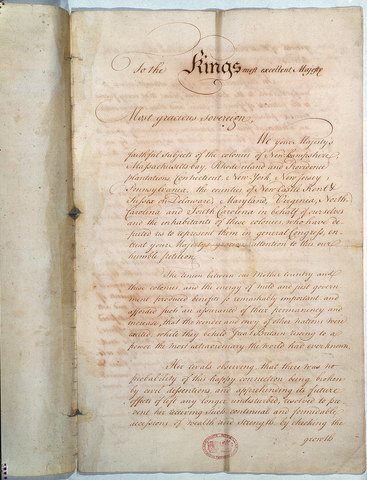 To the Kings most excellent Majesty
Most gracious Sovereign,
We your Majesty's
faithful subjects of the colonies of New Hampshire,
Massachusetts bay, Rhode island and Providence
plantations, Connecticut, New York, New Jersey,
Pennsylvania, the counties of New Castle Kent &
Sussex on Delaware, Maryland, Virginia, North
Carolina and South Carolina in behalf of ourselves
and the inhabitants of these colonies, who have de-
puted us to represent them in general Congress, en-
treat your Majestys gracious attention to this our
humble petition.
The union between our Mother Country and
these colonies, and the energy of mild and just govern-
ment, produced benefits so remarkably important and
afforded such an assurance of their permanency and
increase, that the wonder and envy of other nations were
excited, while they beheld Great Britain riseing to a
power the most extraordinary the world had ever known.
Her rivals observing, that there was no
probability of this happy connection being broken
by civil dissentions, and apprehending its future
effects if left any longer undisturbed, resolved to pre-
vent her receiving such continual and formidable
accessions of wealth and strength, by checking the
growth